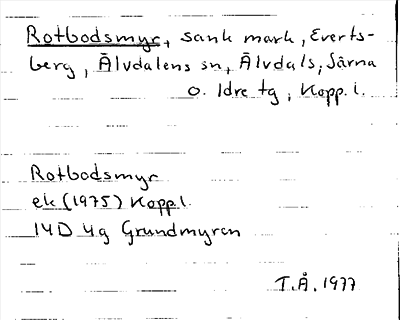 Rotbodsmyr, sank mark, Everts-
berg, Älvdalens sn, Älvdals, Särna
o. Idre tg, Kopp. l.
Rotbodsmyr
ek (1975) Kopp. l.
14D 4g Grundmyren
T.Å. 1977